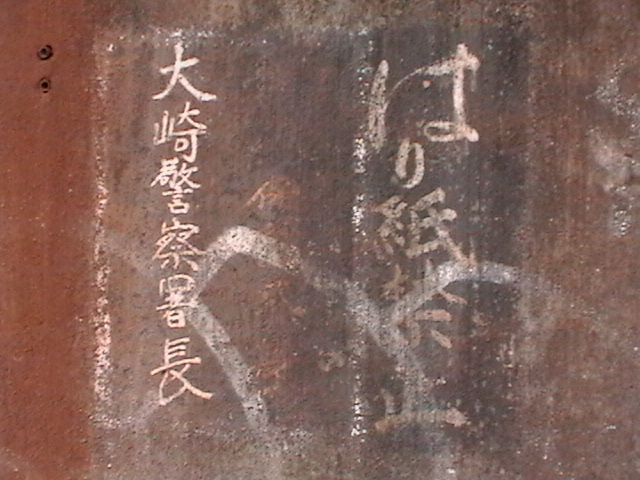 はり紙禁止
大崎警察署長